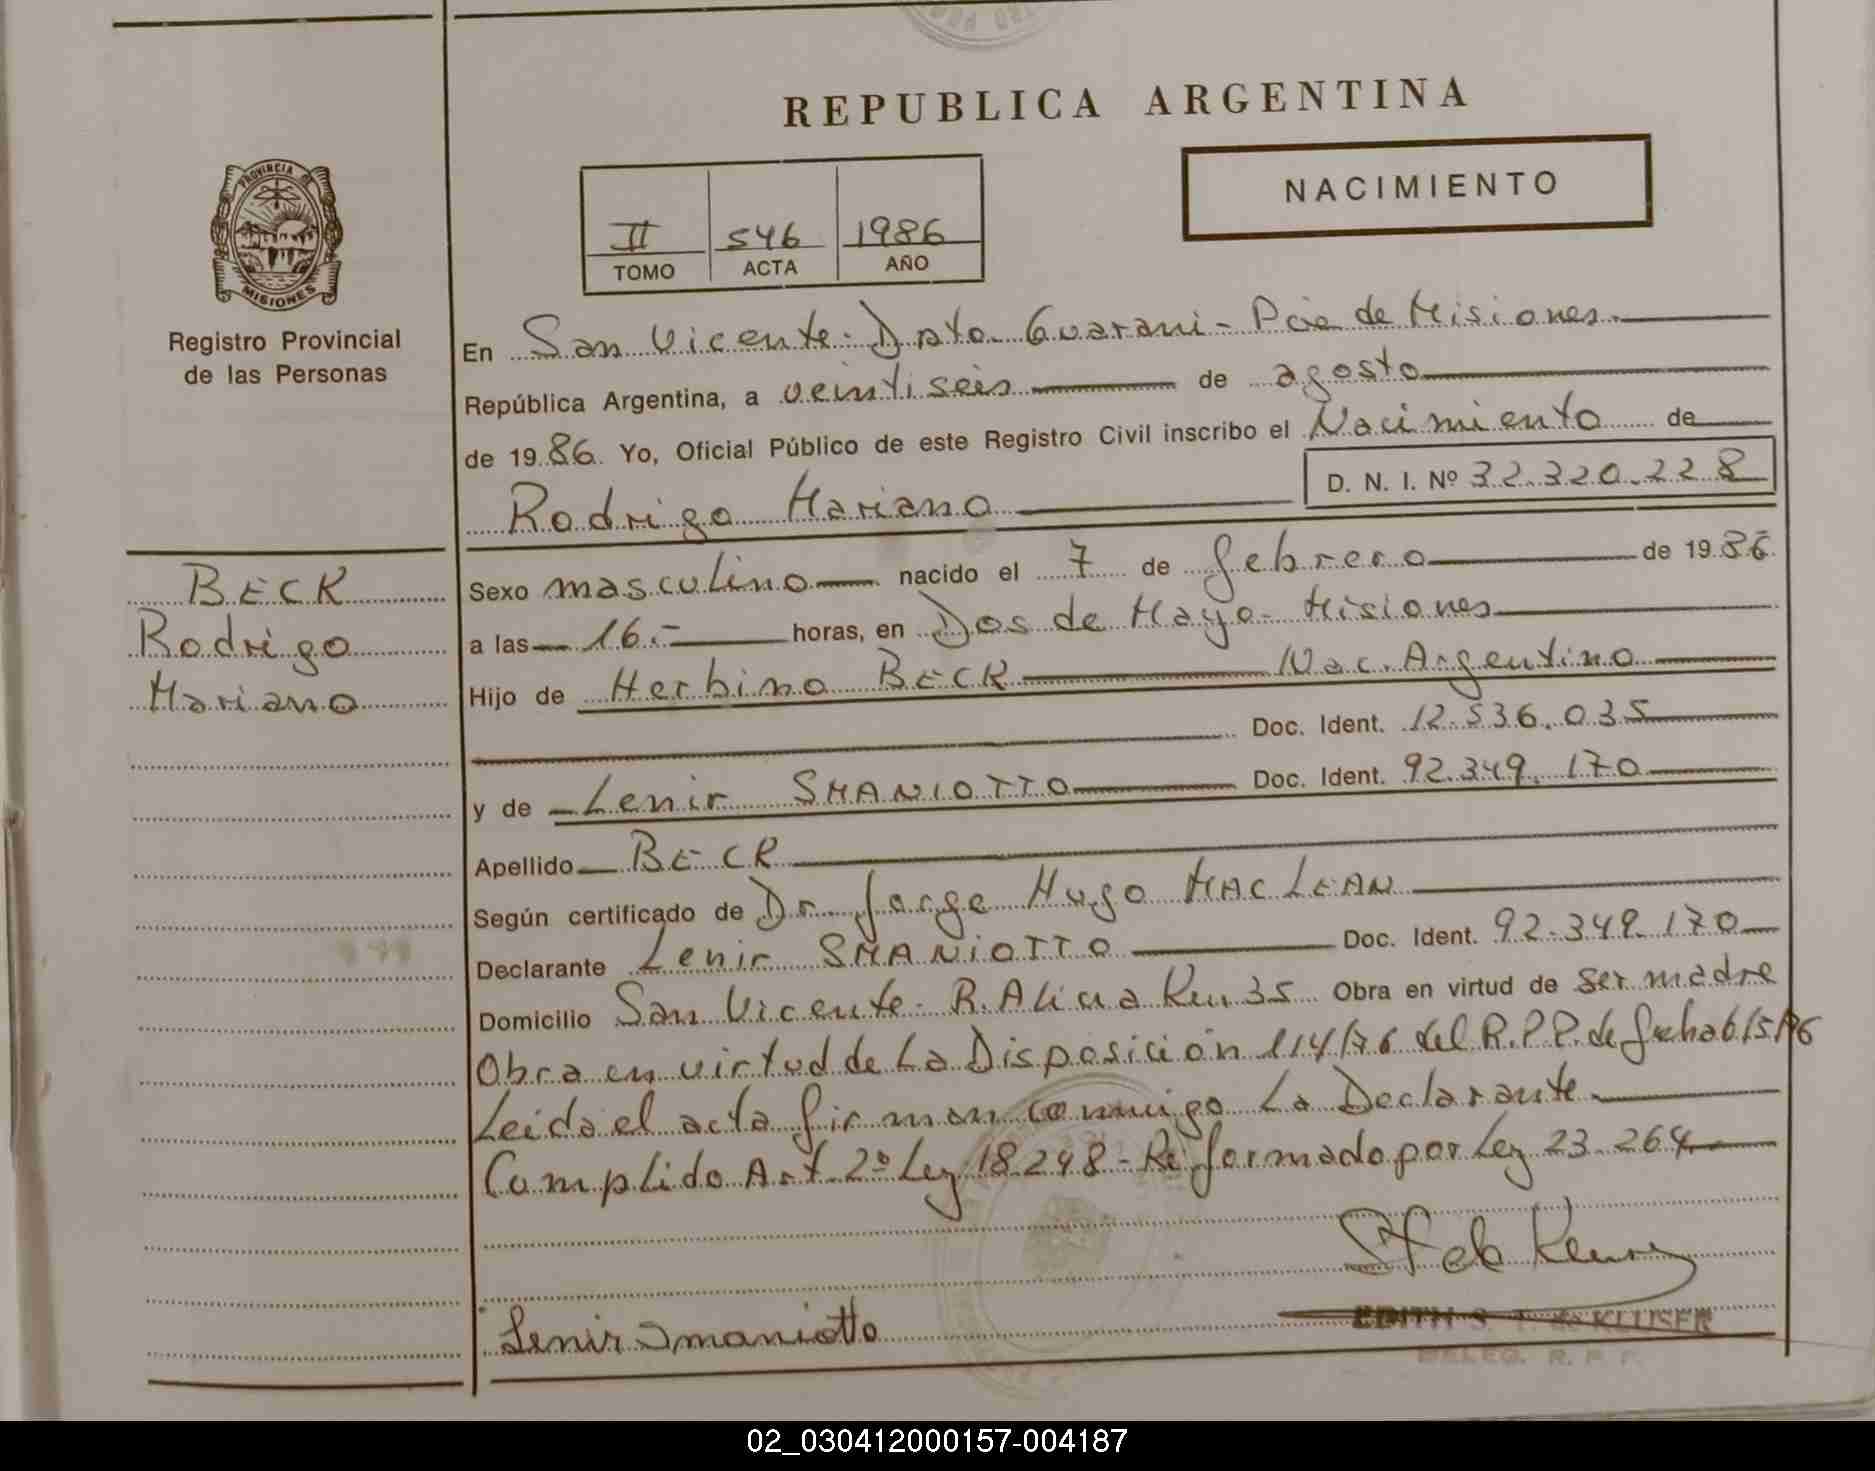 REPUBLICA ARGENTINA
NACIMIENTO
II 546 1986
TOMO ACTA AÑO
PROVINCIA DE
MISIONES
Registro Provincial
de las Personas
En San Vicente - Dpto. Guarani - Pcia de Misiones
República Argentina, a veintiseis de agosto
de 1986. Yo, Oficial Público de este Registro Civil inscribo el Nacimiento de
D. N. I. Nº 32.320.228
Rodrigo Mariano
BECK
Rodrigo
Mariano
Sexo masculino nacido el 7 de febrero de 1986.
a las 16.- horas, en Dos de Mayo - Misiones
Hijo de Herbino BECK Nac. Argentino
Doc. Ident. 12.536.035
y de Lenir SMANIOTTO Doc. Ident. 92.349.170
Apellido BECK
Según certificado de Dr. Jorge Hugo MAC LEAN
Declarante Lenir SMANIOTTO Doc. Ident. 92.349.170
Domicilio San Vicente - R. Alicia Km 35 Obra en virtud de ser madre
Obra en virtud de La Disposición 114/76 del R.P.P. de fecha 6/5/76
Leida el acta firman conmigo La Declarante
Cumplido Art. 2º Ley 18.248 - Reformado por Ley 23.264
Lenir Smaniotto
EDITH S. T. de KLUSER
DELEG. R. P. P.
02_030412000157-004187